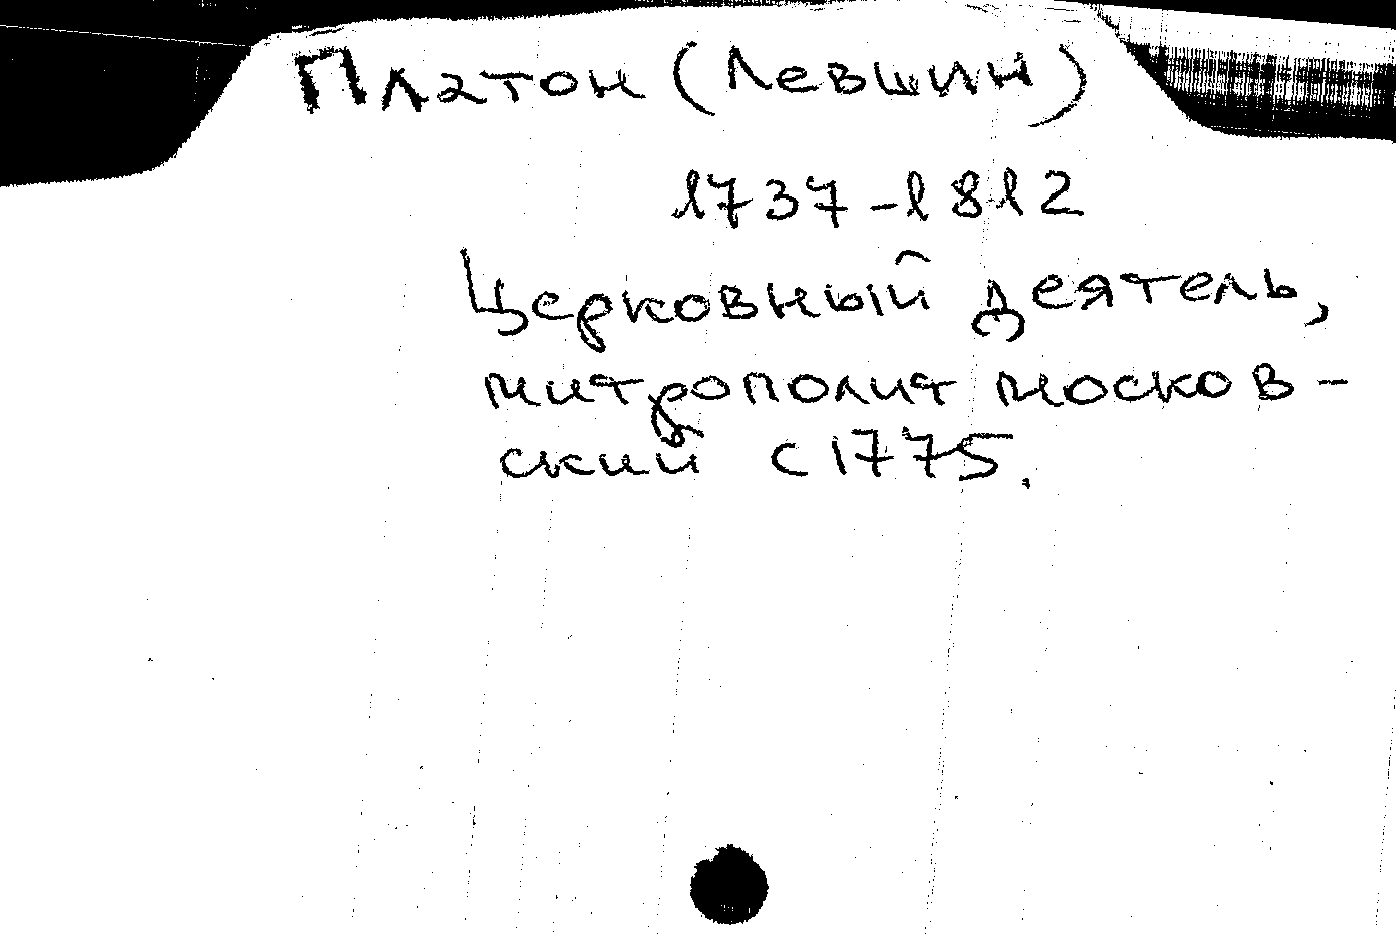 Платон (Левшин)
1737-1812
Церковный деятель,
митрополит москов-
ский с 1775.